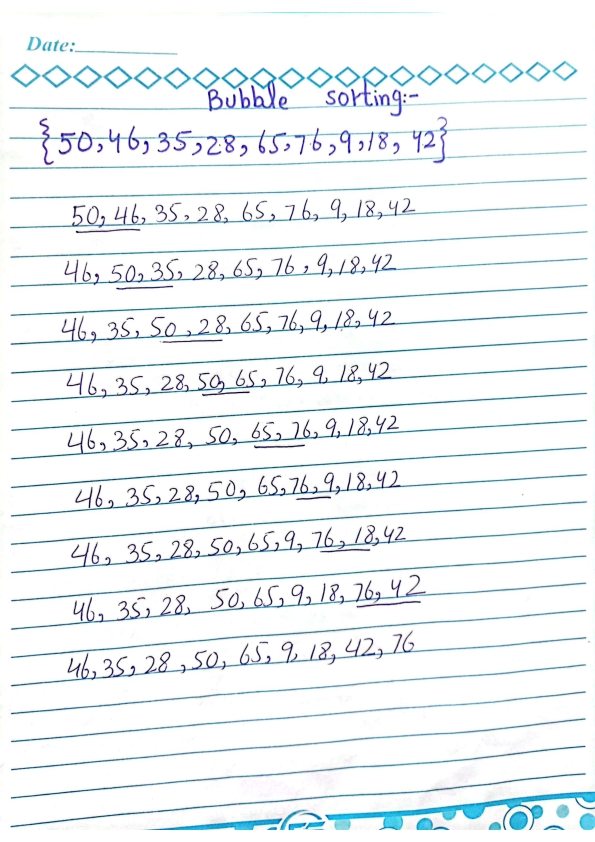 Date:
Bubble sorting:-
{50,46,35,28,65,76,9,18,42}
50,46,35,28,65,76,9,18,42
46,50,35,28,65,76,9,18,42
46,35,50,28,65,76,9,18,42
46,35,28,50,65,76,9,18,42
46,35,28,50,65,76,9,18,42
46,35,28,50,65,76,9,18,42
46,35,28,50,65,9,76,18,42
46,35,28,50,65,9,18,76,42
46,35,28,50,65,9,18,42,76